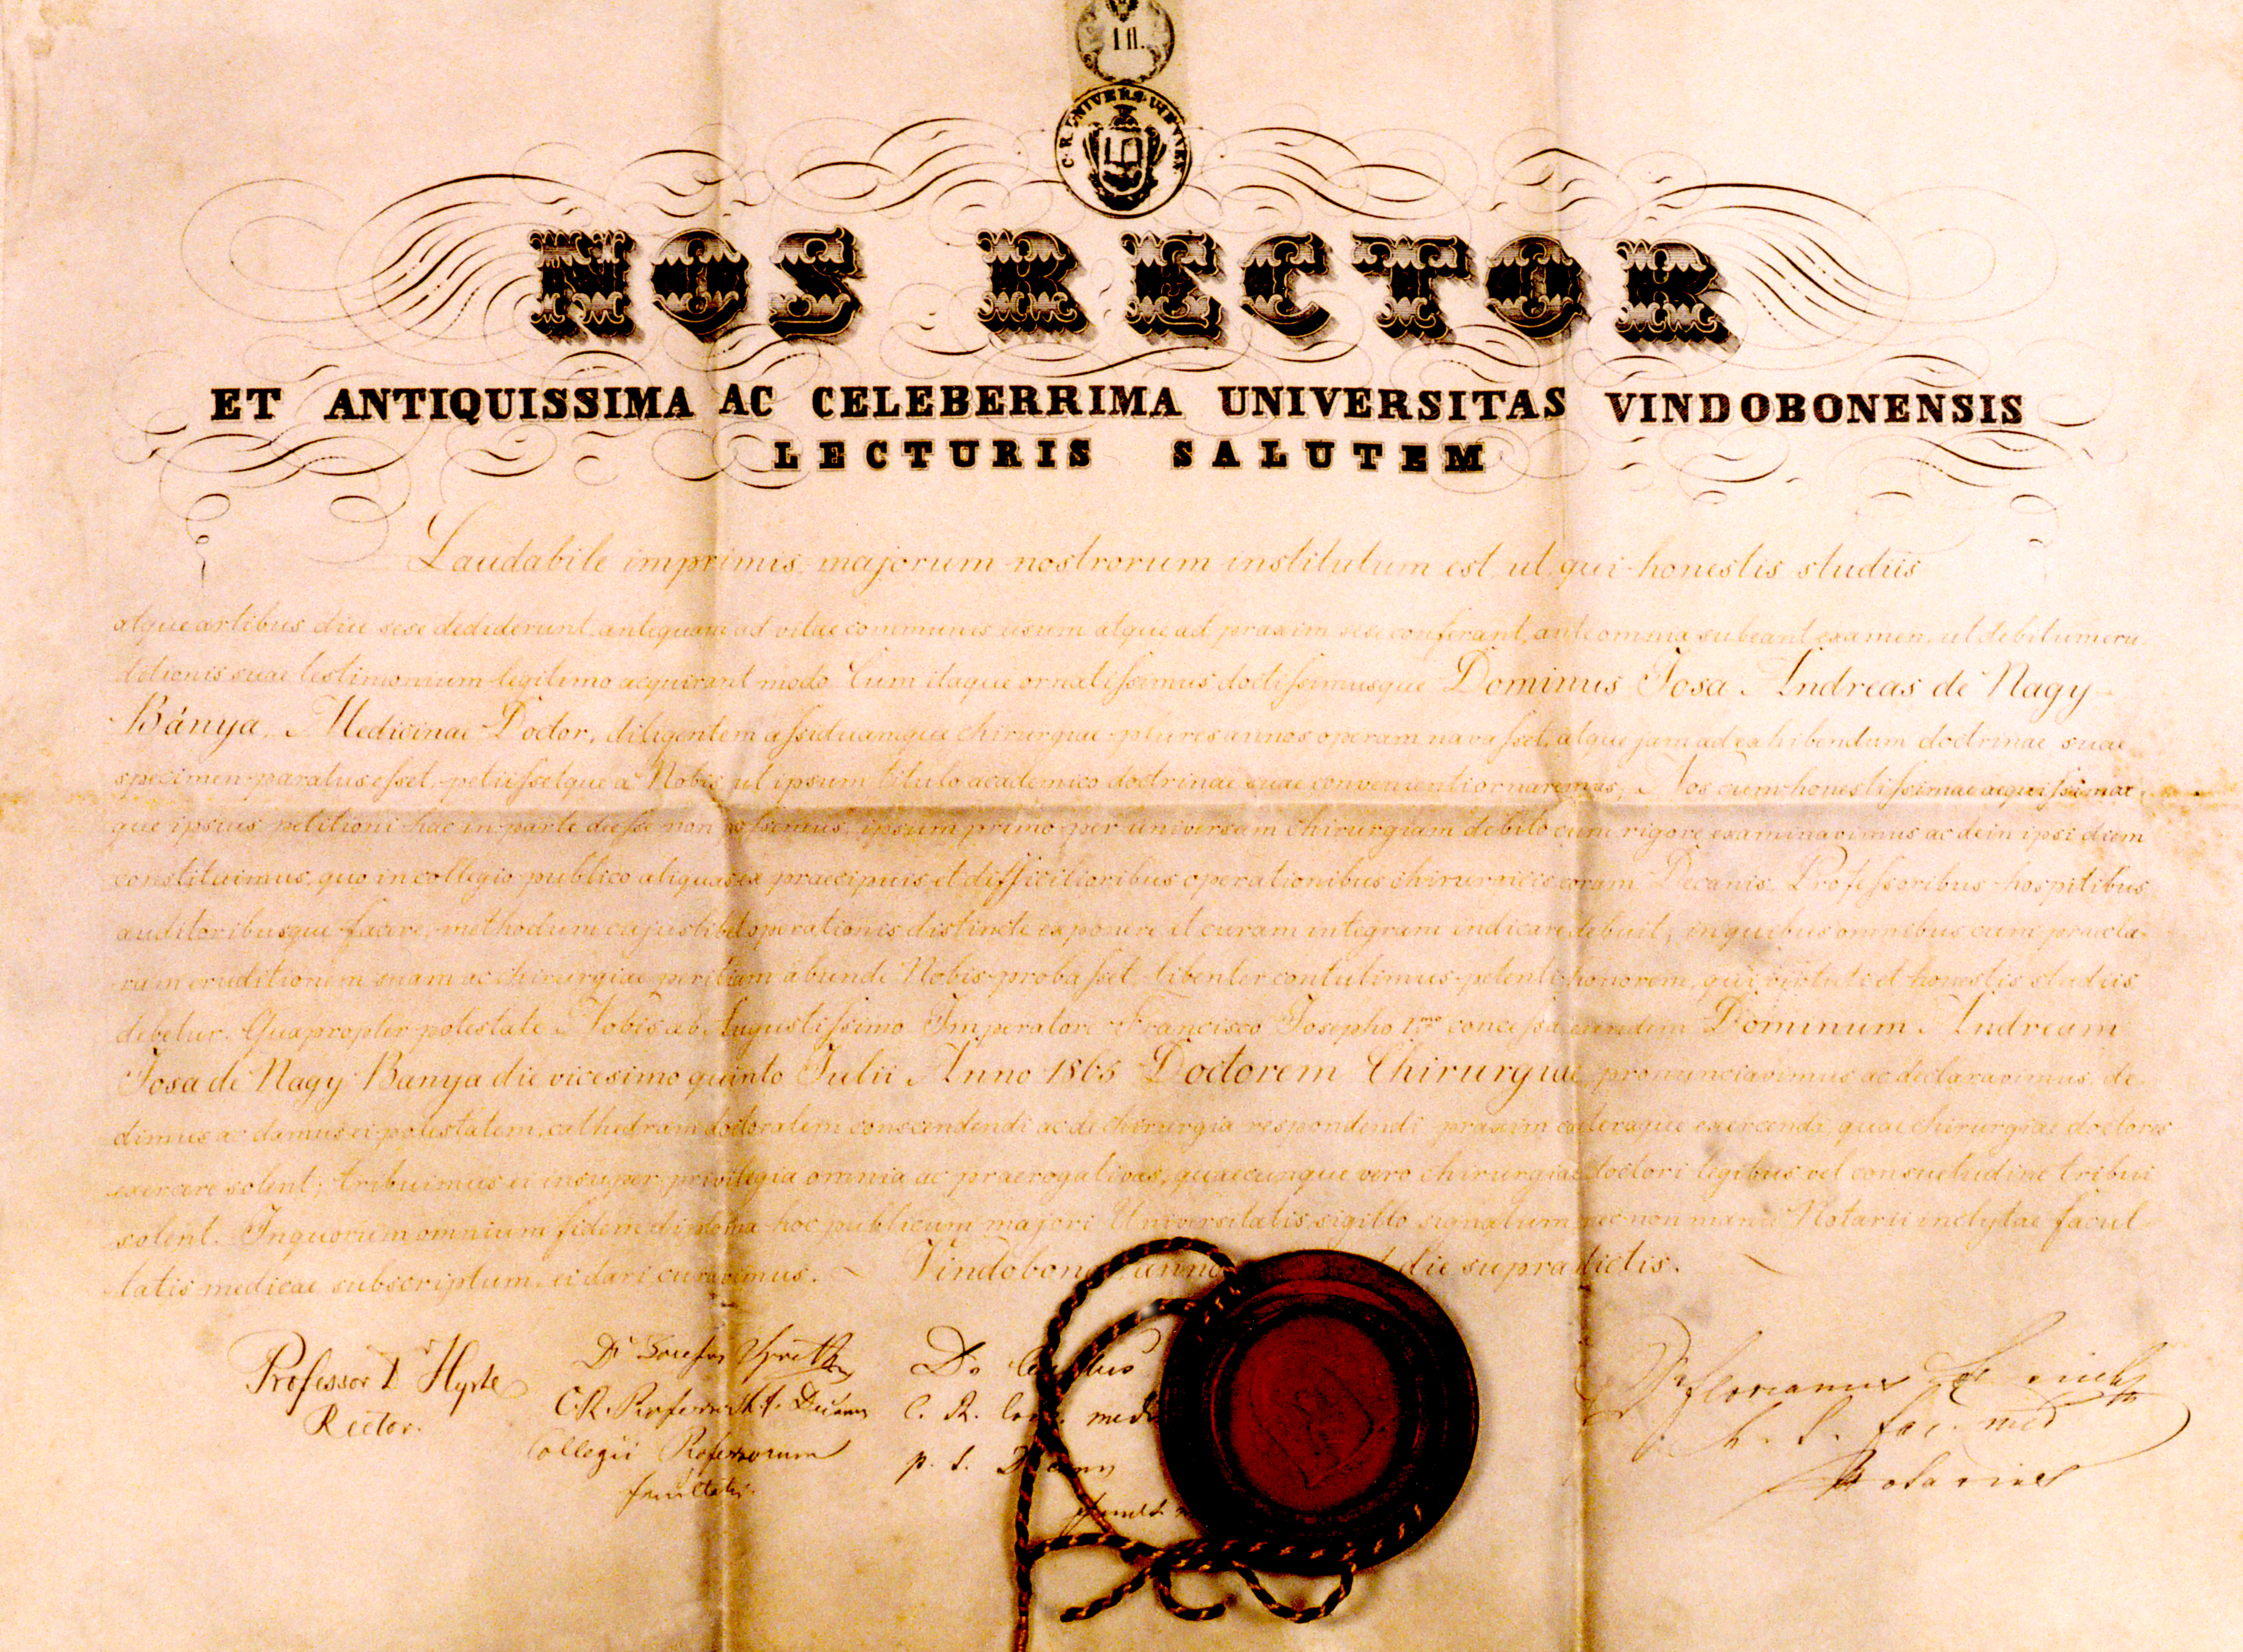 1 fl.
C. R. UNIVERS.
NOS RECTOR
ET ANTIQUISSIMA AC CELEBERRIMA UNIVERSITAS VINDOBONENSIS
LECTURIS SALUTEM
Laudabile imprimis majorum nostrorum institutum est, ut qui honestis studiis
atque artibus diu sese dediderunt antequam ad vitae communis usum atque ad praxim sese conferant, ante omnia subeant examen, ut debitum eru-
ditionis suae testimonium legitimo acquirant modo. Cum itaque ornatissimus doctissimusque Dominus Josa Andreas de Nagy-
Bánya, Medicinae Doctor, diligentem assiduamque chirurgiae plures annos operam navasset, atque jam ad exhibendum doctrinae suae
specimen paratus esset, petiissetque a Nobis ut ipsum titulo academico doctrinae suae convenienti ornaremus, Nos cum honestissimae aequissimae
que ipsius petitioni hac in parte deesse non possimus, ipsum primo per universam chirurgiam debito cum rigore examinavimus ac dein ipsi diem
constituimus, quo in collegio publico aliquas ex praecipuis et difficilioribus operationibus chirurgicis coram Decanis, Professoribus hospitibus
auditoribusque facere, methodum cujuslibet operationis distincte exponere et curam integram indicare debuit; in quibus omnibus cum praecla-
ram eruditionem suam ac chirurgiae peritiam abunde Nobis probasset, libenter contulimus petenti honorem, qui virtuti et honestis studiis
debetur. Quapropter potestate Nobis ab Augustissimo Imperatore Francisco Josepho 1.mo concessa eundem Dominum Andream
Josa de Nagy Banya die vicesimo quinto Julii Anno 1865 Doctorem Chirurgiae pronunciavimus ac declaravimus, de-
dimus ac damus ei potestatem, cathedram doctoralem conscendendi ac de chirurgia respondendi praxim ceteraque exercendi, quae chirurgiae doctores
exercere solent; tribuimus ei insuper privilegia omnia ac praerogativas, quaecunque vero chirurgiae doctori legibus vel consuetudine tribui
solent. In quorum omnium fidem diploma hoc publicum majori Universitatis sigillo signatum nec non manu Notarii inclytae facul-
tatis medicae subscriptum, ei dari curavimus. Vindobonae anno die supradictis.
Professor D Hyrtl
Rector.
Dr
C. R. Professor h. t. Decanus
Collegii Professorum
facultatis
Dr
C. R. med
p. t. Decanus
Dr Florianus
h. t. fac. med
Notarius